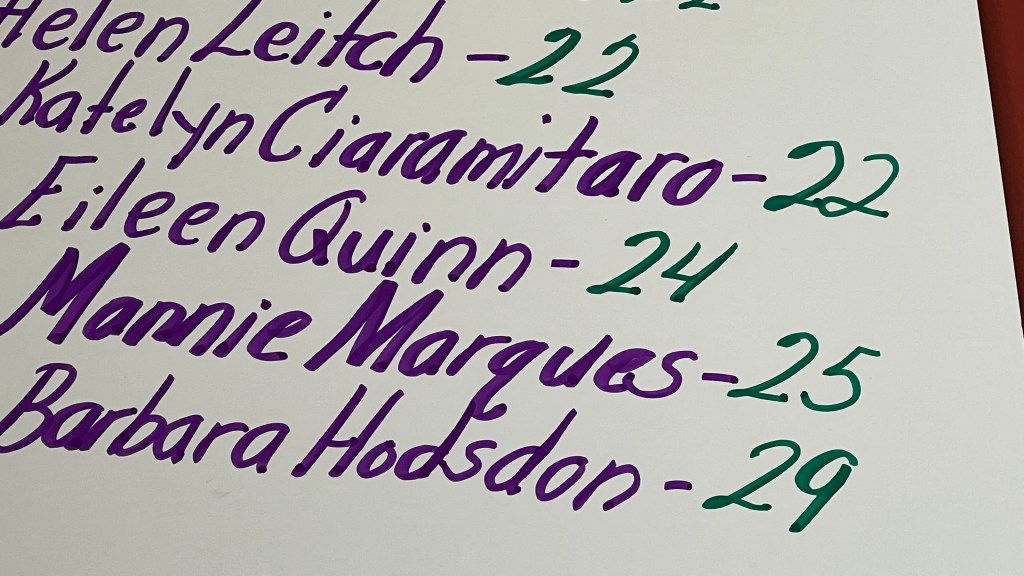 Helen Leitch - 22
Katelyn Ciaramitaro - 22
Eileen Quinn - 24
Mannie Marques - 25
Barbara Hodsdon - 29